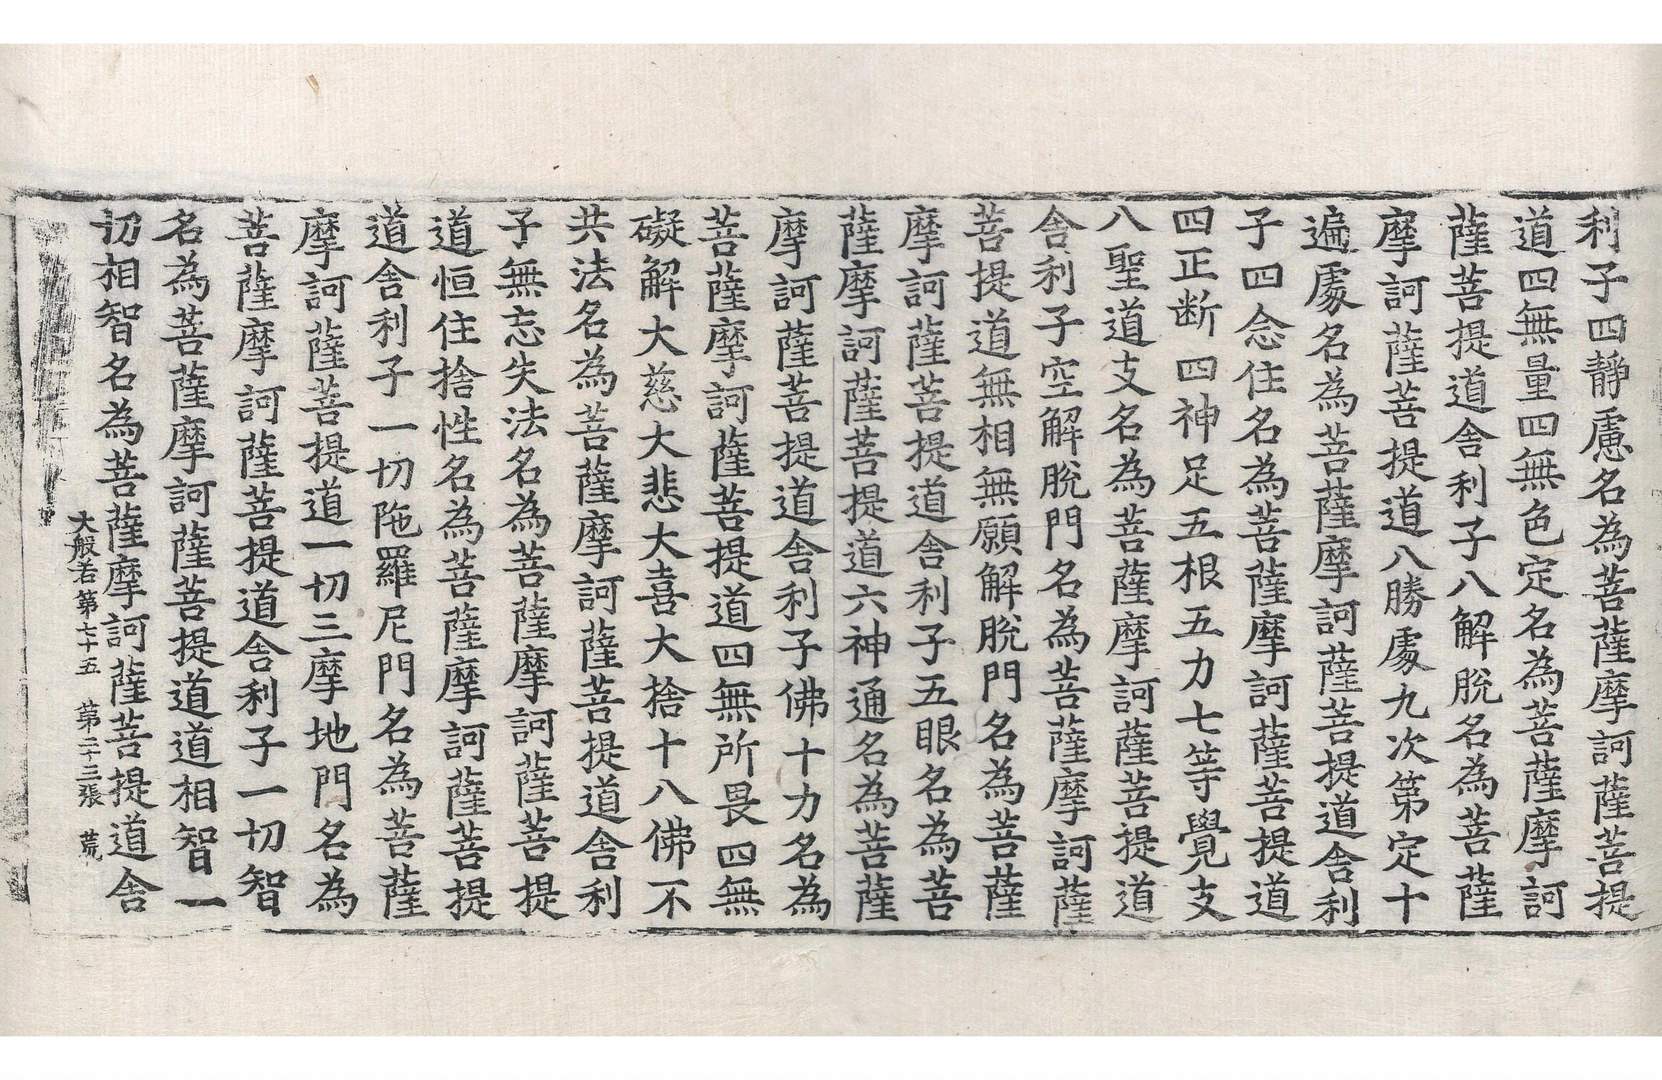 利子四靜慮名為菩薩摩訶薩菩提
道四無量四無色定名為菩薩摩訶
薩菩提道舍利子八解脫名為菩薩
摩訶薩菩提道八勝處九次第定十
遍處名為菩薩摩訶薩菩提道舍利
子四念住名為菩薩摩訶薩菩提道
四正断四神足五根五力七等覺支
八聖道支名為菩薩摩訶薩菩提道
舍利子空解脫門名為菩薩摩訶薩
菩提道無相無願解脫門名為菩薩
摩訶薩菩提道舍利子五眼名為菩
薩摩訶薩菩提道六神通名為菩薩
摩訶薩菩提道舍利子佛十力名為
菩薩摩訶薩菩提道四無所畏四無
礙解大慈大悲大喜大捨十八佛不
共法名為菩薩摩訶薩菩提道舍利
子無忘失法名為菩薩摩訶薩菩提
道恒住捨性名為菩薩摩訶薩菩提
道舍利子一切陁羅尼門名為菩薩
摩訶薩菩提道一切三摩地門名為
菩薩摩訶薩菩提道舍利子一切智
名為菩薩摩訶薩菩提道道相智一
切相智名為菩薩摩訶薩菩提道舍
大般若第七十五 第二十三張 荒